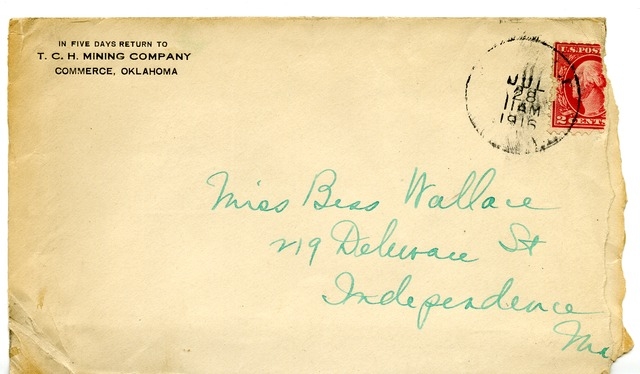 IN FIVE DAYS RETURN TO
T. C. H. MINING COMPANY
COMMERCE, OKLAHOMA
U.S. POST
JUL
28
11 AM
1916
2 CENTS
Miss Bess Wallace
219 Delware St
Independence
Mo